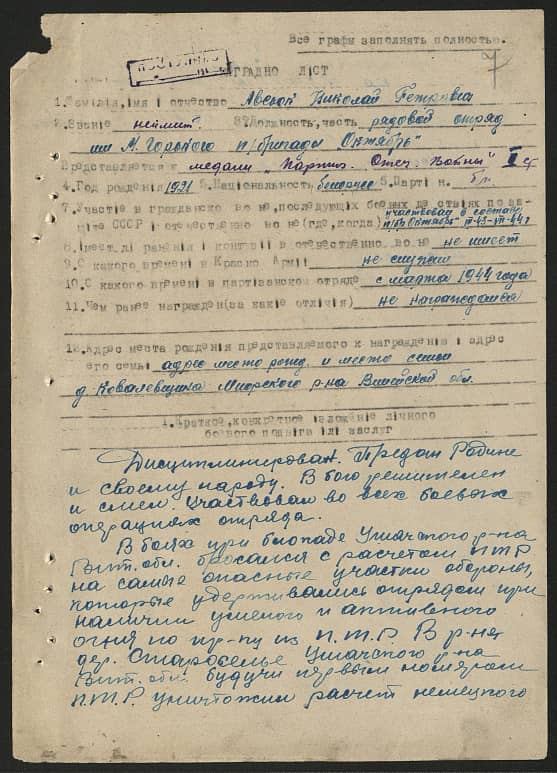 Все графы заполнять полностью.
7
НАГРАДНО ЛIСТ
1. Фамiлiя, имя i отчество Авсюк Николай Петрович
2. Звание не имеет 3. Должность, часть рядовой отряд
им А. Горького п/бригады Октябрь"
Представляется к медали "Партиз. Отеч. Войны" II ст
4. Год рождения 1921 5. Национальность белорус 6. Партi н. б/п
7. Участие в гражданско во не, последующих боевых де ствиях по за-
щите СССР i отечественно во не (где, когда) участвовал в составе
п/бр Октябрь"
8. iмеет лi раненiя i контузiи в отечественно во не не имеет
9. С какого временi в Красно Армii не служил
10. С какого временi в партiзанском отряде с марта 1944 года
11. Чем ранее награжден (за какие отлiчiя) не награждался
12. Адрес места рождения представляемого к награждению i адрес
его семьi адрес место рожд. и место семьи
д. Ковалевщина Миорского р-на Вилейской обл.
1. Краткое, конкретное iзложение лiчного
боевого подвiга iлi заслуг
Дисциплинирован. Предан Родине
и своему народу. В бою решителен
и смел. Участвовал во всех боевых
операциях отряда.
В боях при блокаде Ушачского р-на
Вит. обл. бросался с расчетом П.Т.Р.
на самые опасные участки обороны,
которые удерживались отрядом при
наличии умелого и активного
огня по пр-ку из П.Т.Р. В р-не
дер. Староселье Ушачского р-на
Вит. обл. будучи первым номером
П.Т.Р. уничтожил расчет немецкого